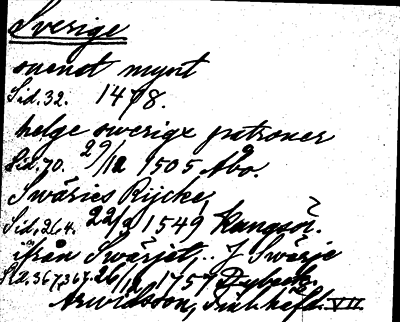 Sverige
suenst mynt
Sid. 32. 1478.
helge swerigx patroner
Sid. 70. 29/12 1505 Åbo.
Swäries Rijcke,
Sid. 264. 22/9 1549 Kungsör.
ifrån Swärjet,.. J Swärje
Sid. 367, 367. 26/12 1757
Arwidsson, Finl. häfd. VII